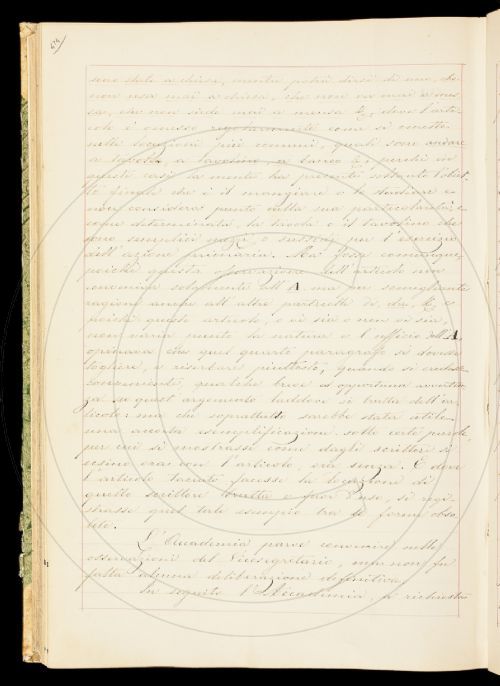 sono state a chiesa, mentre potrà dirsi di uno, che
non esca mai a chiesa, che non va mai a mes-
sa, che non siede mai a mensa &, dove l'arti-
colo è omesso regolarmente come si omette
nelle locuzioni più comuni, quali sono andare
a tavola, a tavolino, a banco &, perchè in
questi casi la mente ha presente soltanto l'obiet-
to finale che è il mangiare o lo studiare e
non considera punto nella sua particolarità, e
come determinata, la tavola o il tavolino che
sono semplici mezzi, o sussidj per l'esercizio
dell'azione primaria. Ma fosse comunque,
poichè questa osservazione dell'articolo non
conveniva solamente all'A ma per somigliante
ragione anche all'altre particelle di, da, & e
poichè questo articolo, o vi sia o non vi sia,
non varia punto la natura e l'ufficio dell'A,
opinava che quel quarto paragrafo si dovesse
togliere, e riserbare piuttosto, quando si credesse
conveniente, qualche breve ed opportuna avverten-
za su quest'argomento laddove si tratta dell'ar-
ticolo: ma che soprattutto sarebbe stata utile
una accurata esemplificazione sotto certe parole
per cui si mostrasse come dagli scrittori si
usino ora con l'articolo, ora senza. E dove
l'articolo taciuto facesse la locazione di
questo scrittore fuor d'uso, si regi-
strasse quel tale esempio tra le forme obso-
lete.
L'Accademia parve convenire nelle
osservazioni del Vicesegretario, ma non fu
fatta alcuna deliberazione definitiva.
In seguito l'Accademia, a richiesta